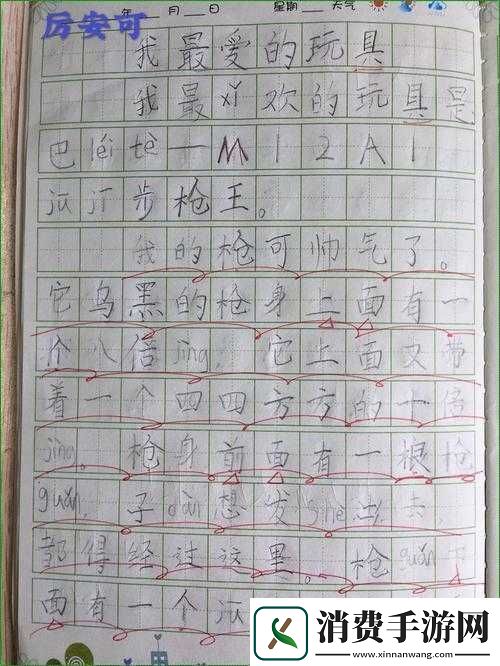 年 月 日 星期 天气
厉安可
我最爱的玩具
我最xǐ欢的玩具是
巴léi tè一M12A1
jū jī步枪王。
我的枪可帅气了。
它乌黑的枪身上面有一
个八倍jìng,它上面又带
着一个四四方方的十倍
jìng。枪身前面有一根枪
guǎn,子dàn想发shè出去,
都得经过这里。枪guǎn下
面有一个
消费手游网
www.xinnanwang.com